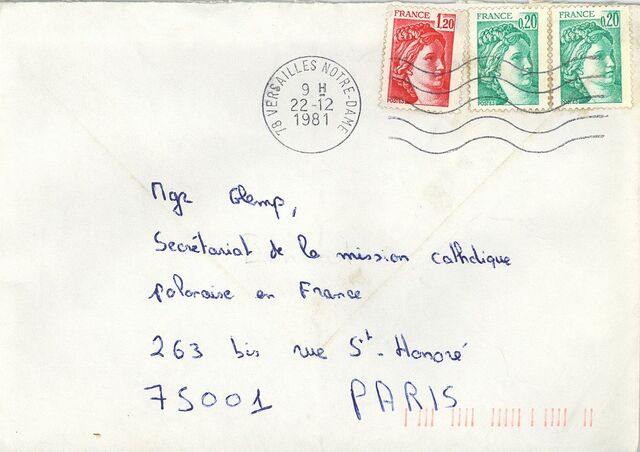 FRANCE 1,20
FRANCE 0,20
FRANCE 0,20
POSTES
POSTES
POSTES
78 VERSAILLES NOTRE-DAME
9 H
22-12
1981
Mgr Glemp,
Secrétariat de la mission catholique
polonaise en France
263 bis rue St-Honoré
75001 PARIS